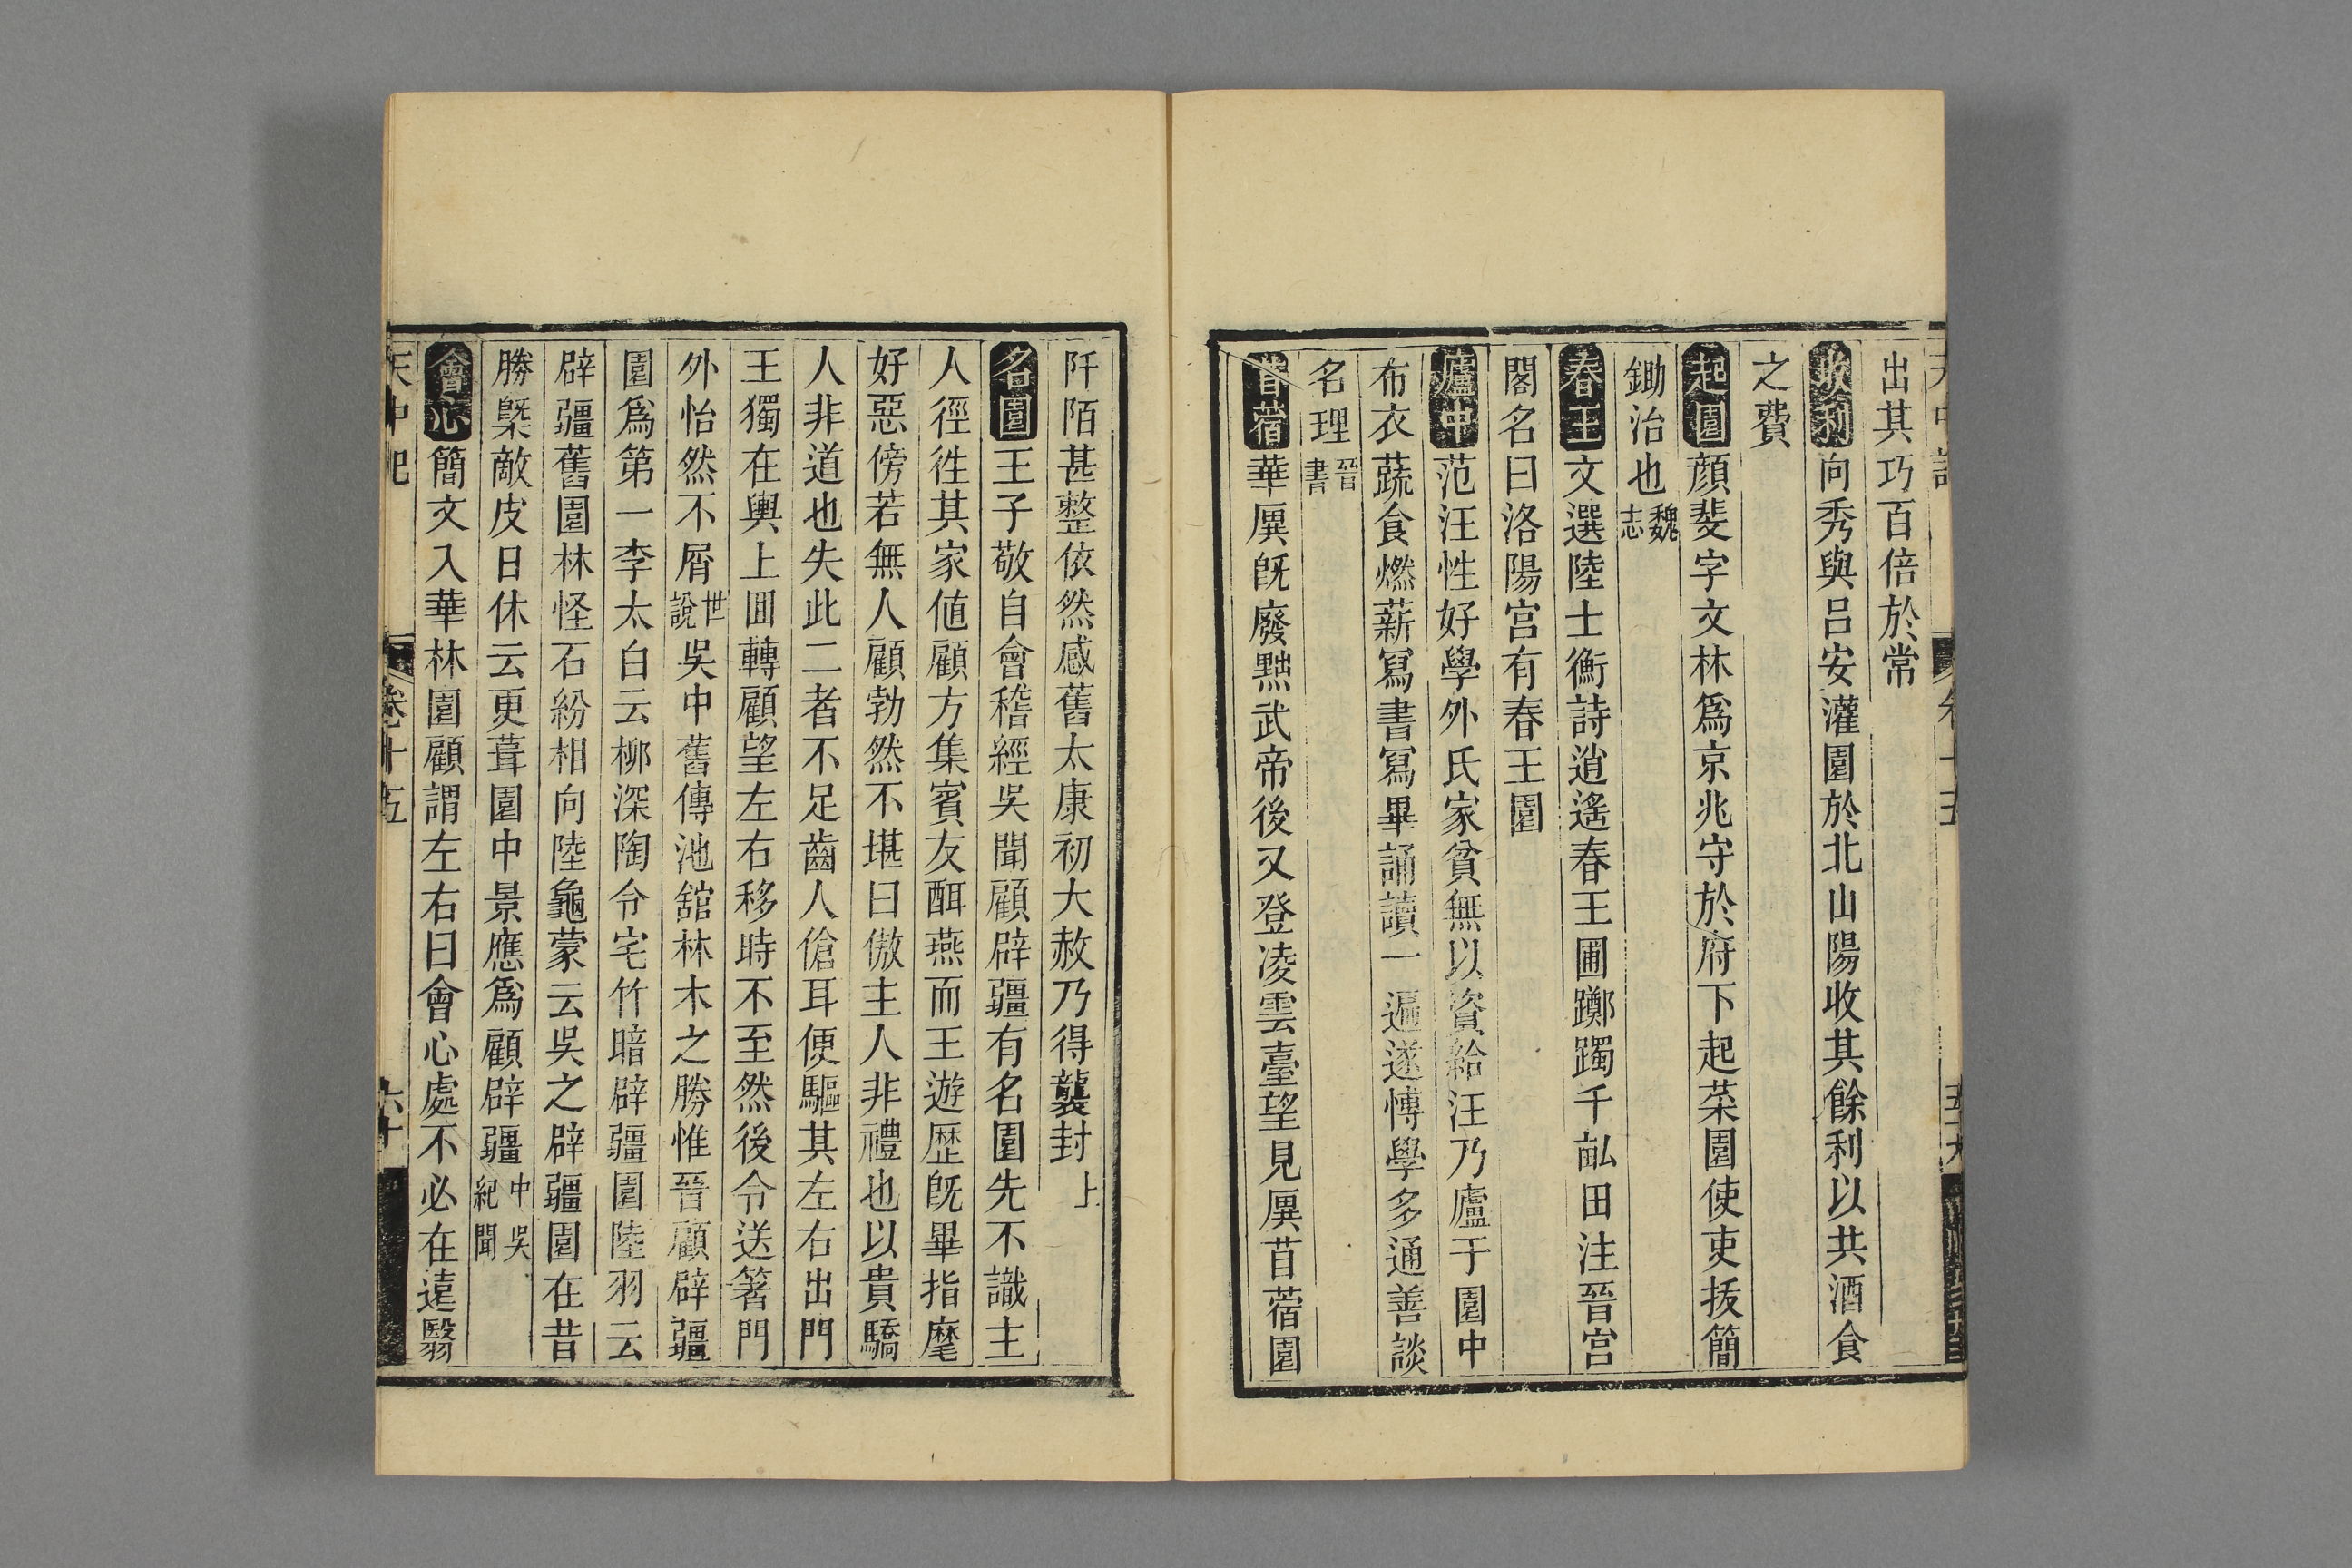 出其巧百倍於常
收利向秀與呂安灌園於北山陽收其餘利以共酒食
之費
起園顏斐字文林爲京兆守於府下起菜園使吏拔簡
鋤治也魏志
春王文選陸士衡詩逍遙春王圃躑躅千畝田注晉宮
閣名曰洛陽宮有春王園
廬中范汪性好學外氏家貧無以資給汪乃廬于園中
布衣蔬食燃薪寫書寫畢誦讀一遍遂博學多通善談
名理晉書
苜蓿華廙旣廢黜武帝後又登凌雲臺望見廙苜蓿園
阡陌甚整依然感舊太康初大赦乃得襲封上
名園王子敬自會稽經吳聞顧辟疆有名園先不識主
人徑徃其家値顧方集賓友酣燕而王遊歷旣畢指麾
好惡傍若無人顧勃然不堪曰傲主人非禮也以貴驕
人非道也失此二者不足齒人傖耳便驅其左右出門
王獨在輿上囬轉顧望左右移時不至然後令送箸門
外怡然不屑世說吳中舊傳池舘林木之勝惟晉顧辟疆
園爲第一李太白云柳深陶令宅竹暗辟疆園陸羽云
辟疆舊園林怪石紛相向陸龜蒙云吳之辟疆園在昔
勝槩敵皮日休云更葺園中景應爲顧辟疆中吳紀聞
會心簡文入華林園顧謂左右曰會心處不必在遠翳
天中記 卷十五 六十